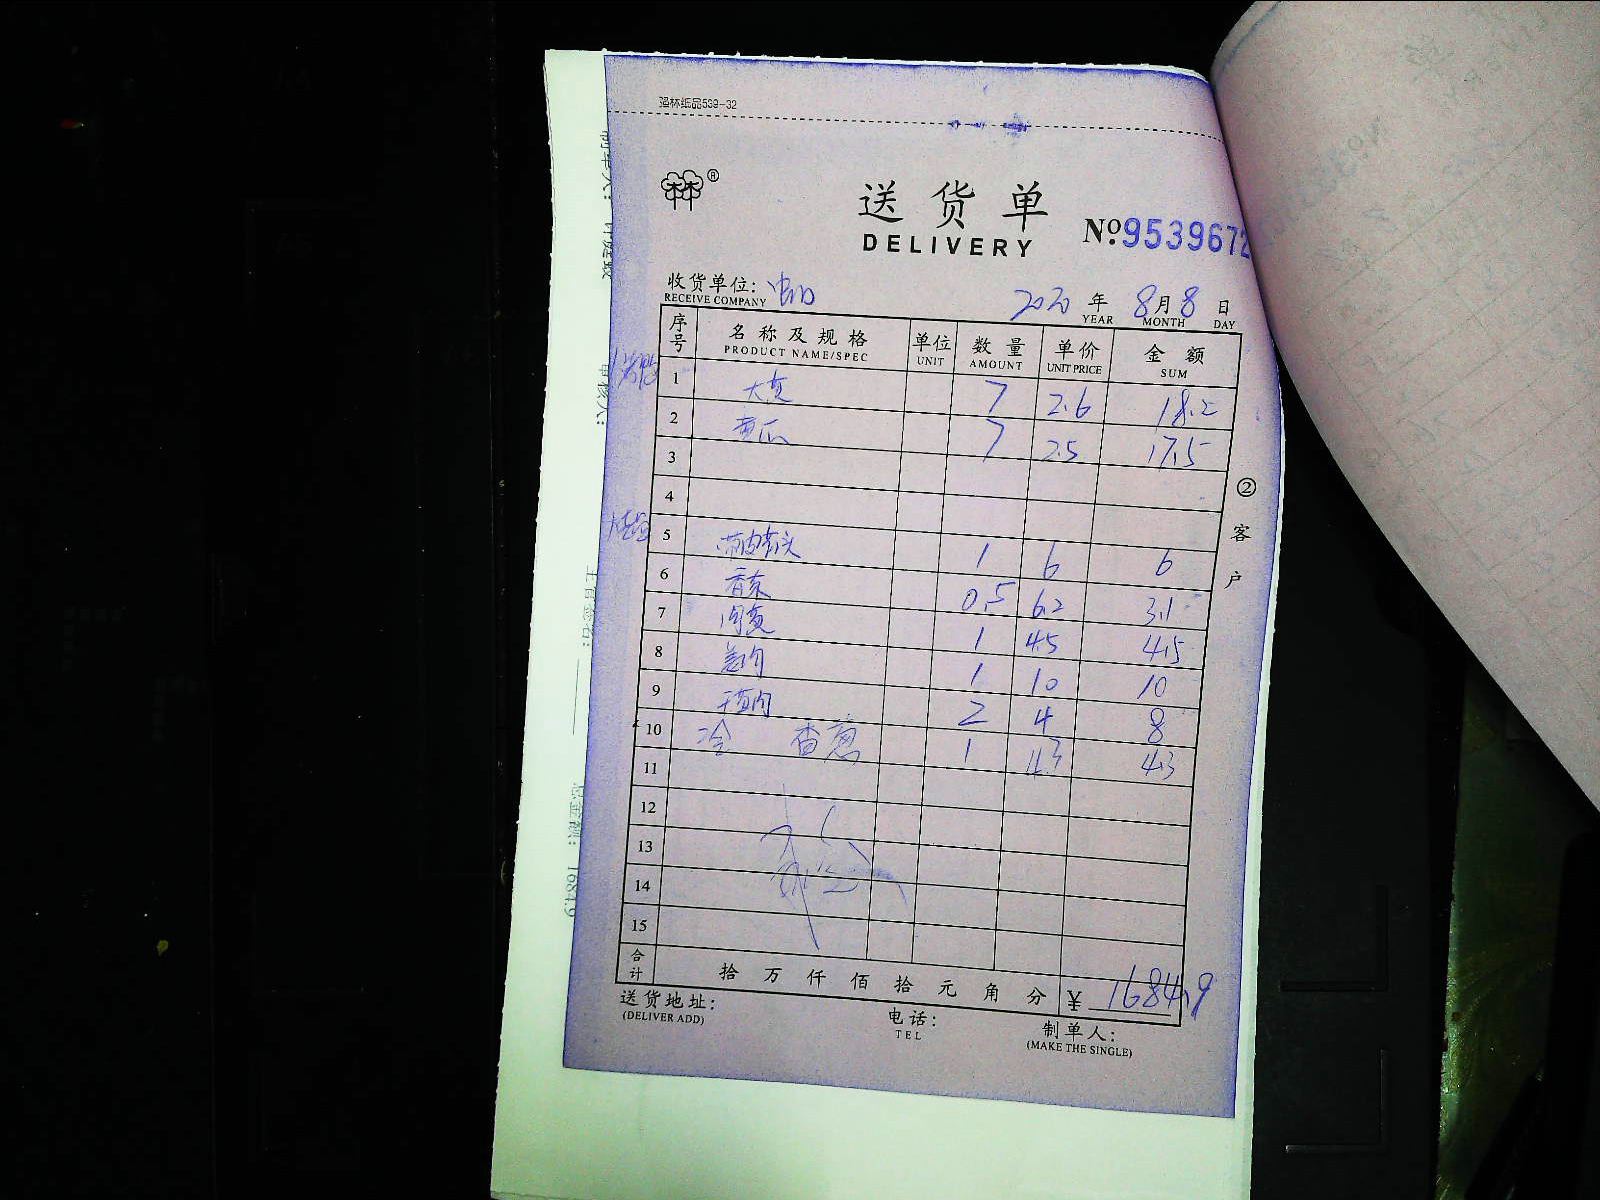 强林纸品539-32
林林®
送货单
DELIVERY
No.9539672
收货单位:
RECEIVE COMPANY
2020 年 8月 8 日
YEAR MONTH DAY
序号 名称及规格 单位 数量 单价 金额
PRODUCT NAME/SPEC UNIT AMOUNT UNIT PRICE SUM
1 大黄 7 2.6 18.2
2 黄瓜 7 2.5 17.5
3
4
5 带皮 1 6 6
6 香菜 0.5 6.2 3.1
7 1 4.5 4.5
8 1 10 10
9 2 4 8
10 冷 香葱 1 4.3 4.3
11
12
13
14
15
合计 拾 万 仟 佰 拾 元 角 分 ¥ 1684.9
送货地址:
(DELIVER ADD)
电话:
TEL
制单人:
(MAKE THE SINGLE)
② 客户
审核人:
总金额: 1684.9